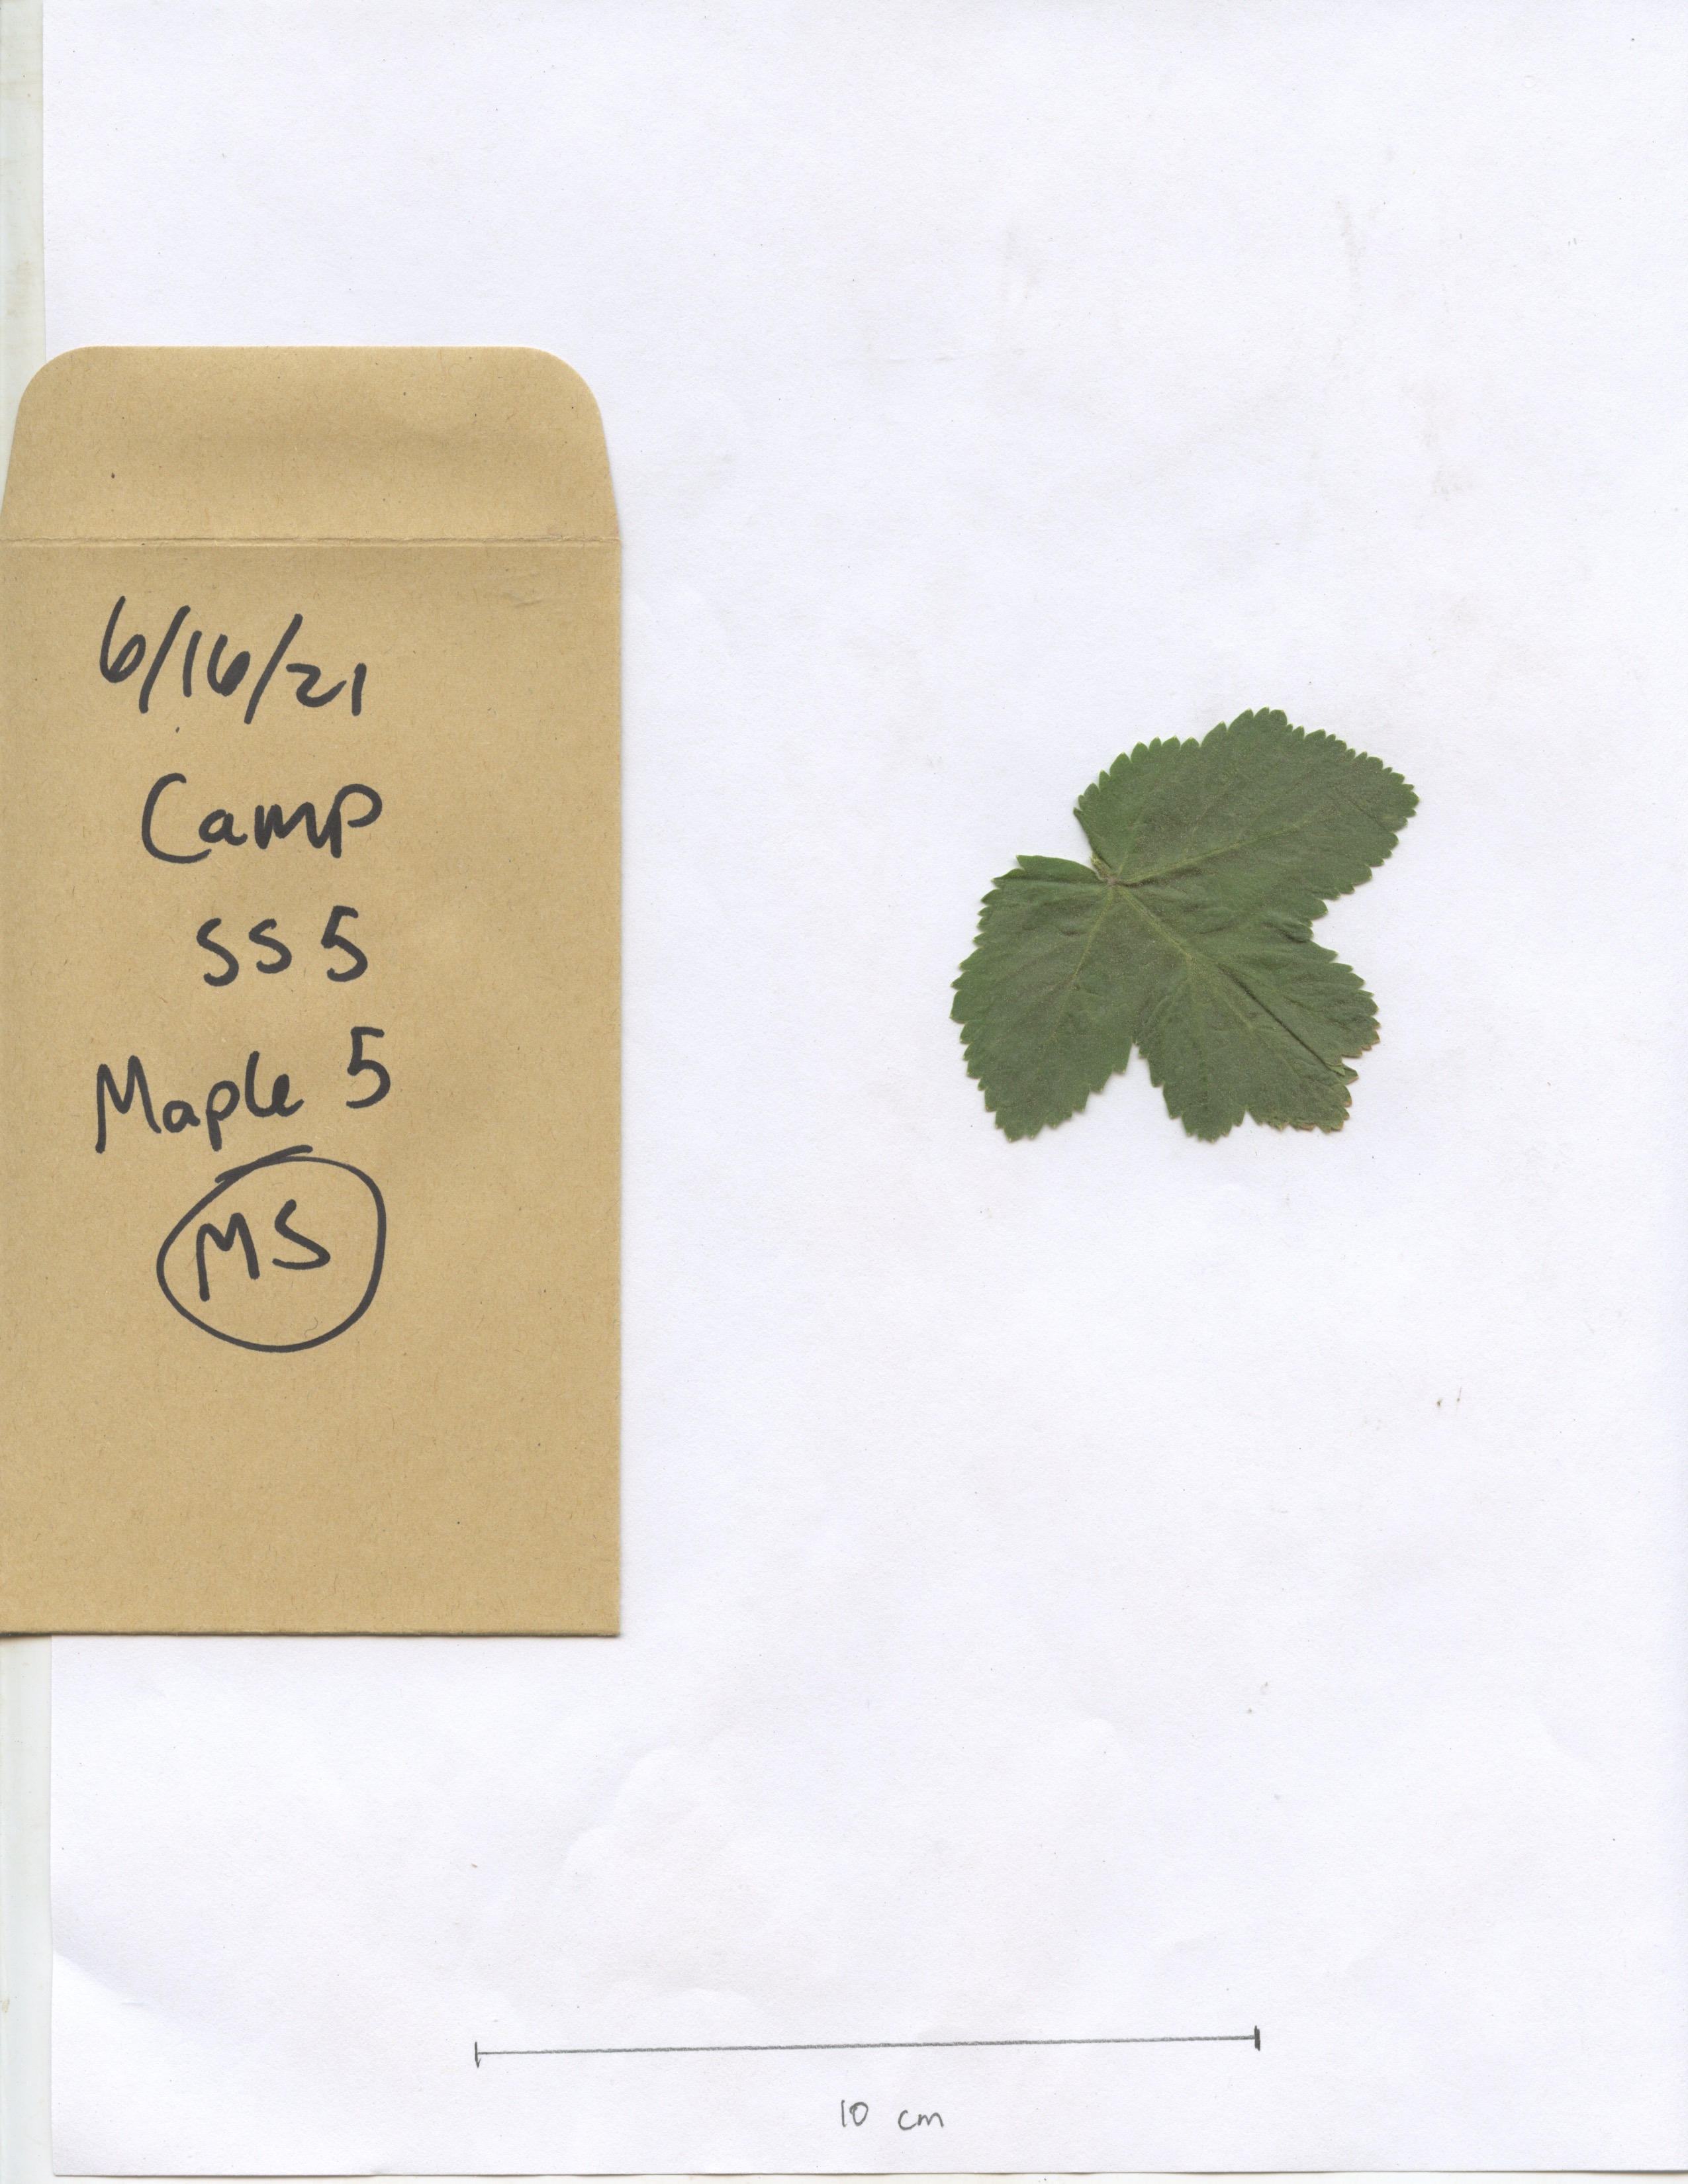 6/16/21
Camp
SS 5
Maple 5
MS
10 cm